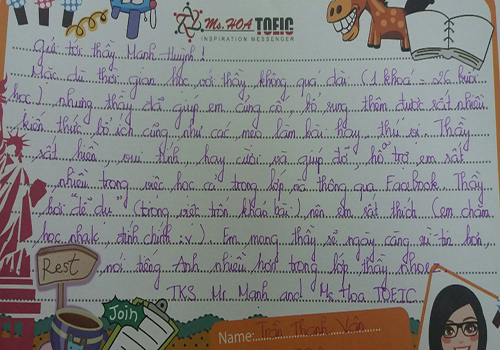 Ms. HOA TOEIC
INSPIRATION MESSENGER
Gửi tới thầy Mạnh Huỳnh!
Mặc dù thời gian học với thầy không quá dài (1 khoá = 26 buổi
học) nhưng thầy đã giúp em củng cố, bổ sung thêm được rất nhiều
kiến thức bổ ích cũng như các mẹo làm bài hay, thú vị. Thầy
rất hiền, vui tính, hay cười và giúp đỡ, hỗ trợ em rất
nhiều trong việc học cả trong lớp và thông qua Facebook. Thầy
hơi "dễ dụ" (tưởng viết trốn khảo bài) nên em rất thích (em chăm
học nhak, đính chính :v) Em mong thầy sẽ ngày càng
nói tiếng Anh nhiều hơn trong lớp thầy nhoe
TKS Mr. Mạnh and Ms Hoa TOEIC
Rest
Join
Name: Trần Thanh Vân